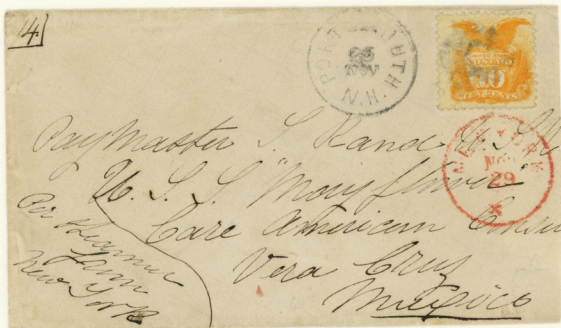 4
PORTSMOUTH. N.H.
26
NOV
POSTAGE
10
TEN CENTS
NEW YORK
NOV
29
Paymaster S. Rand U.S.N
U. S. S. "Mayflower"
Care American Consul
Vera Cruz
Mexico
Per Steamer
from
New York